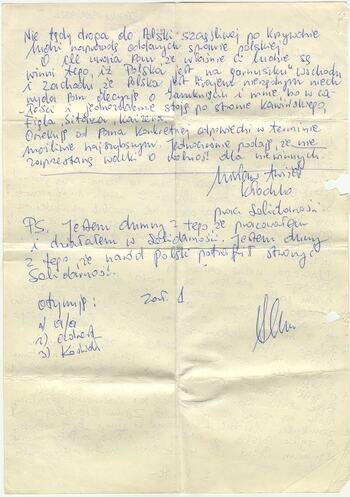 Nie tędy droga do Polski szczęśliwej po krzywdzie
ludzi naprawdę oddanych sprawie polskiej.
O ile uważa Pan, że właśnie ci ludzie są
winni tego, iż Polska jest na "garnuszku" wschodu
i zachodu że Polska jest krajem niezgodnym niech
wyda Pan decyzję o i mnie bo w ca-
łości i jednoznacznie stoję po stronie Kamińskiego,
Figla, Kaizera.
Oczekuję od Pana konkretnej odpowiedzi w terminie
możliwie najszybszym. Jednocześnie podaję, że nie
zaprzestanę walki o wolność dla niewinnych

prac. Solidarności
PS. Jestem dumny z tego, że pracowałem
i działałem w Solidarności. Jestem dumny
z tego że naród polski potrafił stworzyć
Solidarność.
Otrzymują: Zał. 1
1) a/a
2)
3)